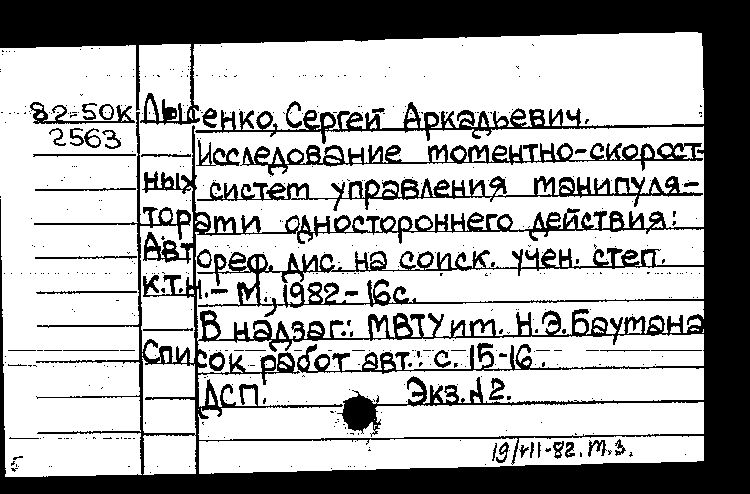 82-50к Лысенко, Сергей Аркадьевич.
2563
Исследование моментно-скорост-
ных систем управления манипуля-
торами одностороннего действия:
Автореф. дис. на соиск. учен. степ.
к.т.н. - М., 1982. - 16с.
В надзаг.: МВТУ им. Н.Э.Баумана
Список работ авт.: с. 15-16.
ДСП. Экз. №2.
19/VII-82. м.з.
Б